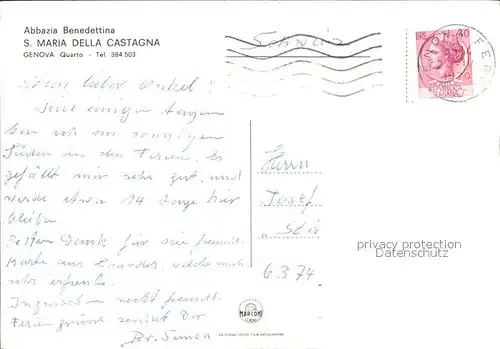 Abbazia Benedettina
S. MARIA DELLA CASTAGNA
GENOVA Quarto - Tel. 384.503
Schweiz
LIRE 40
Mein lieber Onkel!
seit einigen Tagen
bin ich im sonnigen
Süden in den Ferien. Es
gefällt mir sehr gut, und
werde etwa 14 Tage hier
bleiben
Besten Dank für die freundl.
Karte aus Lourdes, welche mich
sehr erfreute.
Inzwischen recht freundl.
Feriengrüsse sendet Dir
Br. Simon
Herrn
Josef
6374
privacy protection
Datenschutz
MARCONI